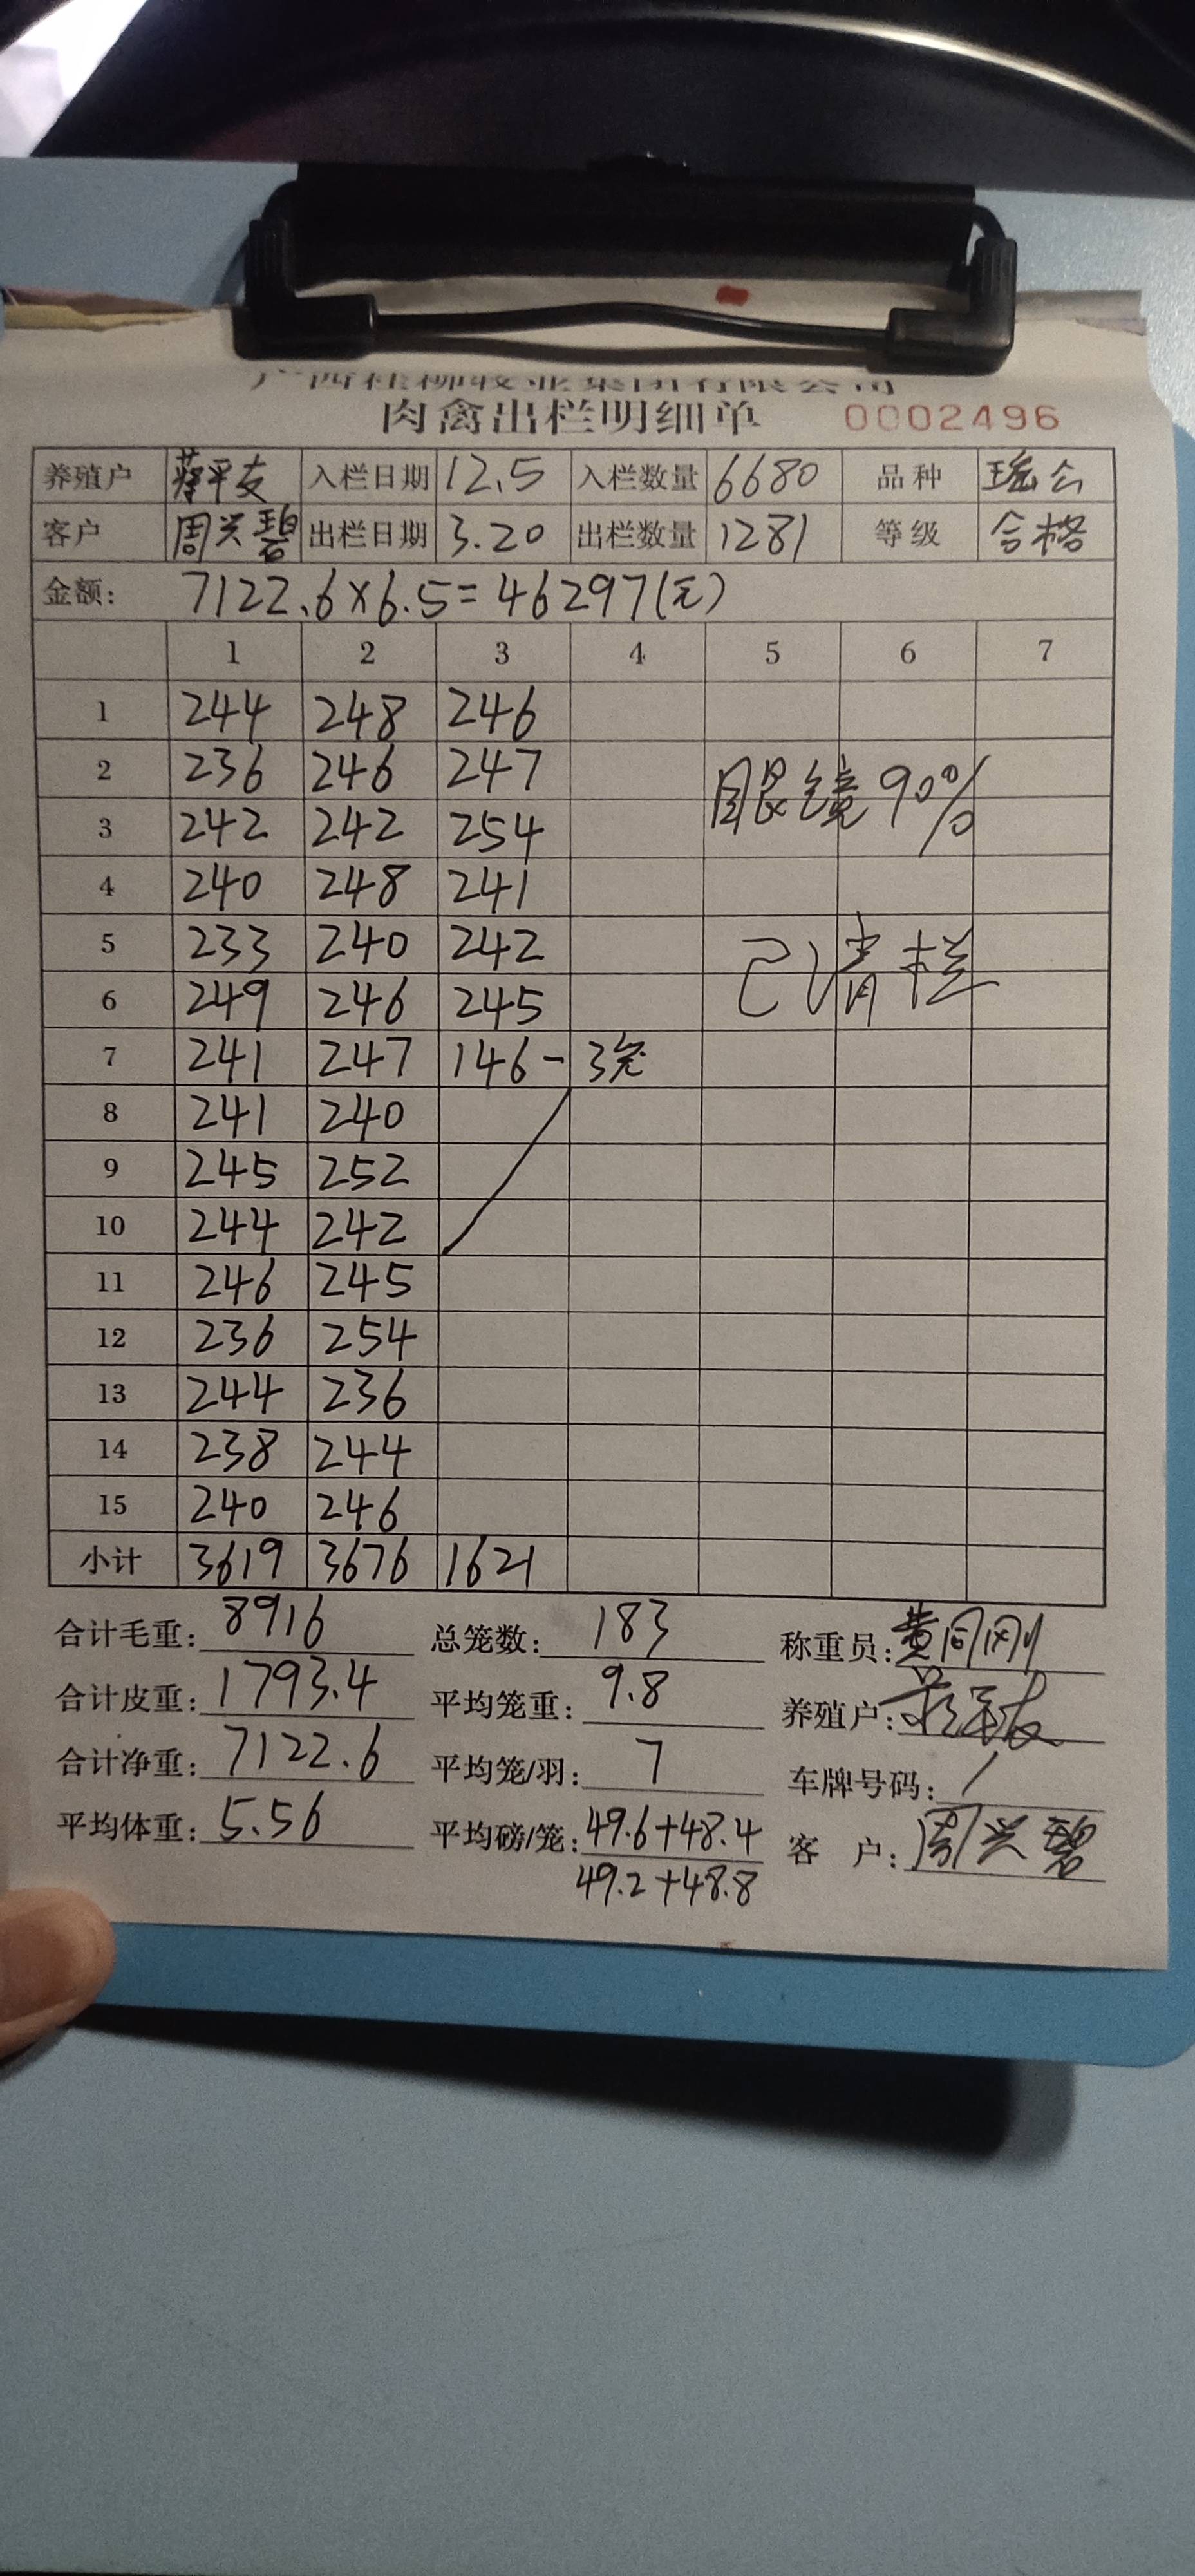 广西桂柳牧业集团有限公司
肉禽出栏明细单 0002496
养殖户 蒋平友 入栏日期 12.5 入栏数量 6680 品种 瑶公
客户 周兴碧 出栏日期 3.20 出栏数量 1281 等级 合格
金额: 7122.6×6.5=46297(元)
1 2 3 4 5 6 7
1 244 248 246
2 236 246 247 眼镜90%
3 242 242 254
4 240 248 241
5 233 240 242 已清栏
6 249 246 245
7 241 247 146-3笼
8 241 240
9 245 252
10 244 242
11 246 245
12 236 254
13 244 236
14 238 244
15 240 246
小计 3619 3676 1621
合计毛重: 8916 总笼数: 183 称重员: 黄同刚
合计皮重: 1793.4 平均笼重: 9.8 养殖户:
合计净重: 7122.6 平均笼/羽: 7 车牌号码: /
平均体重: 5.56 平均磅/笼: 49.6+48.4 客户: 周兴碧
49.2+48.8